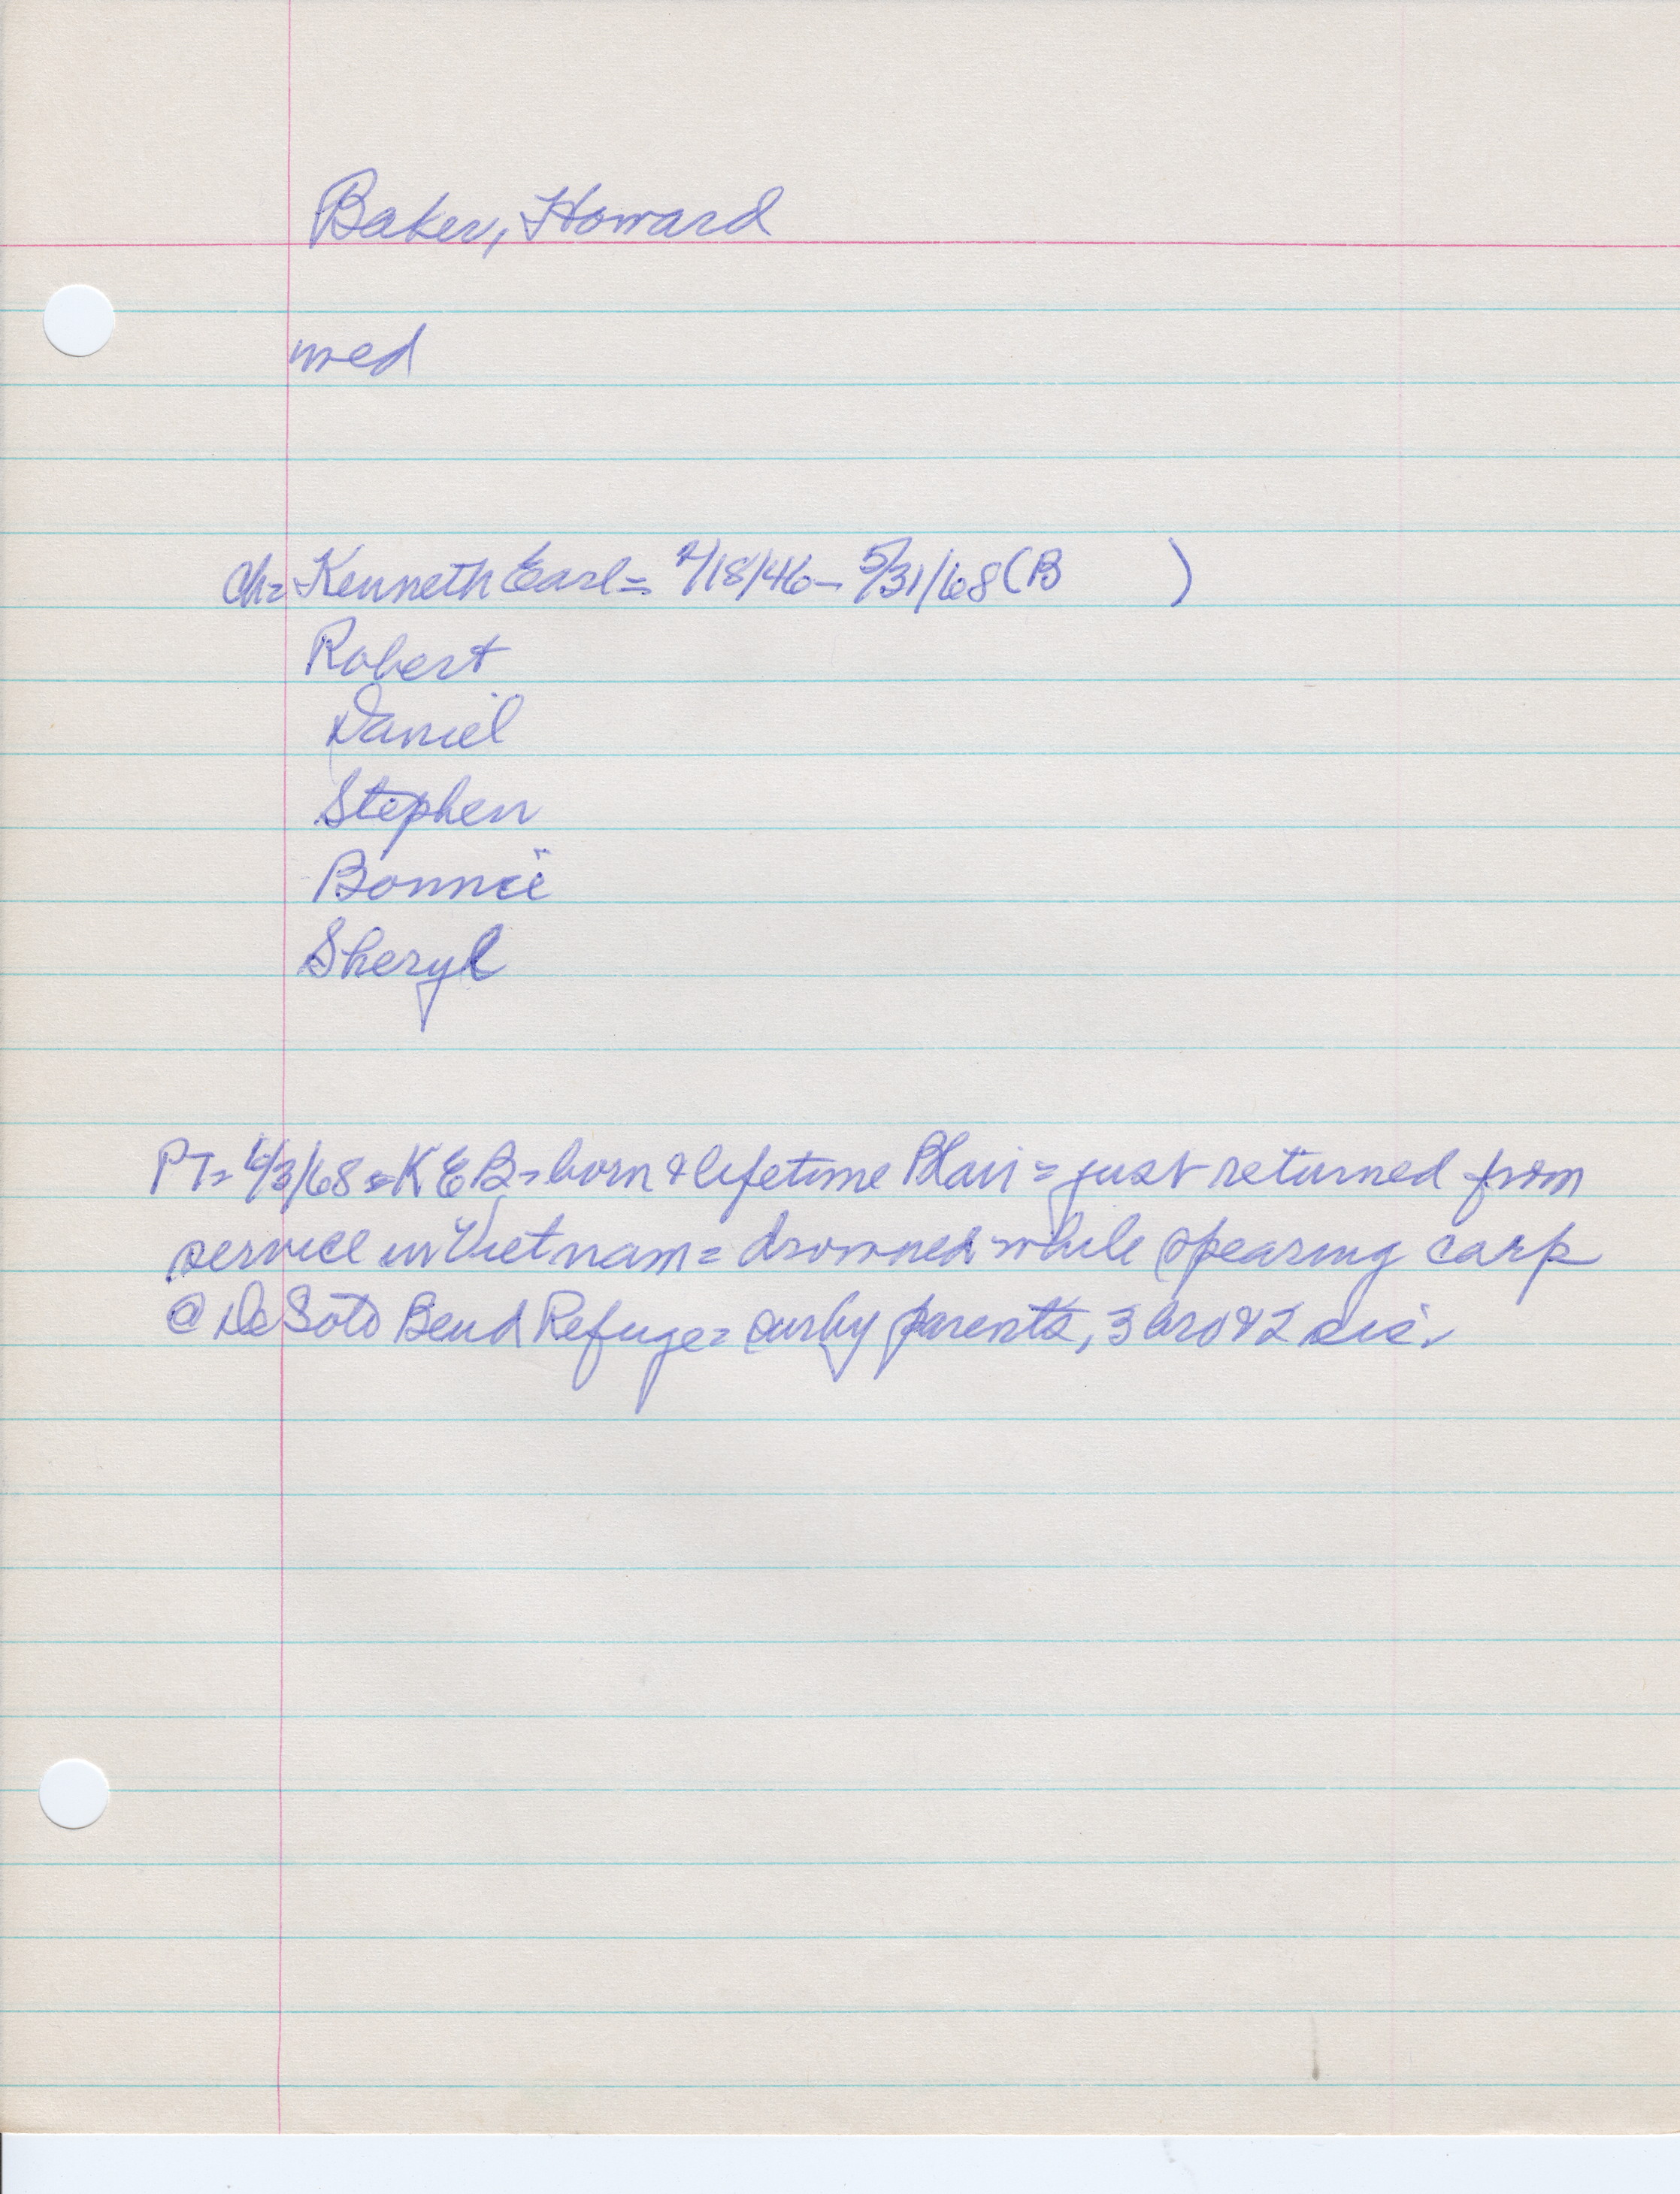 Baker, Howard
wed
ch= Kenneth Earl= 2/18/46- 5/31/68 (B )
Robert
Daniel
Stephen
Bonnie
Sheryl
PT= 6/3/68= KEB= born & lifetime Blair= just returned from
service in Vietnam= drowned while spearing carp
@ DeSoto Bend Refuge= surby parents, 3 bro & 2 sis.